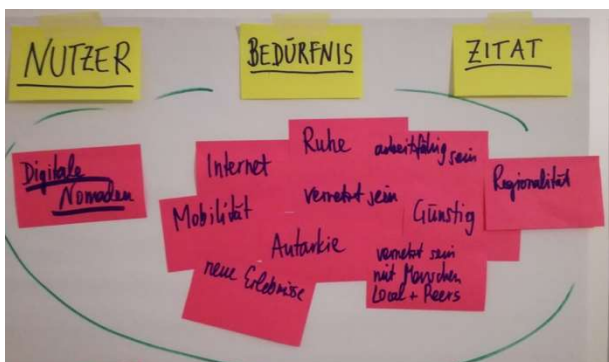 NUTZER
BEDÜRFNIS
ZITAT
Digitale
Nomaden
Internet
Ruhe
arbeitsfähig sein
Regionalität
Mobilität
vernetzt sein
Günstig
Autarkie
neue Erlebnisse
vernetzt sein
mit Menschen
Local + Peers